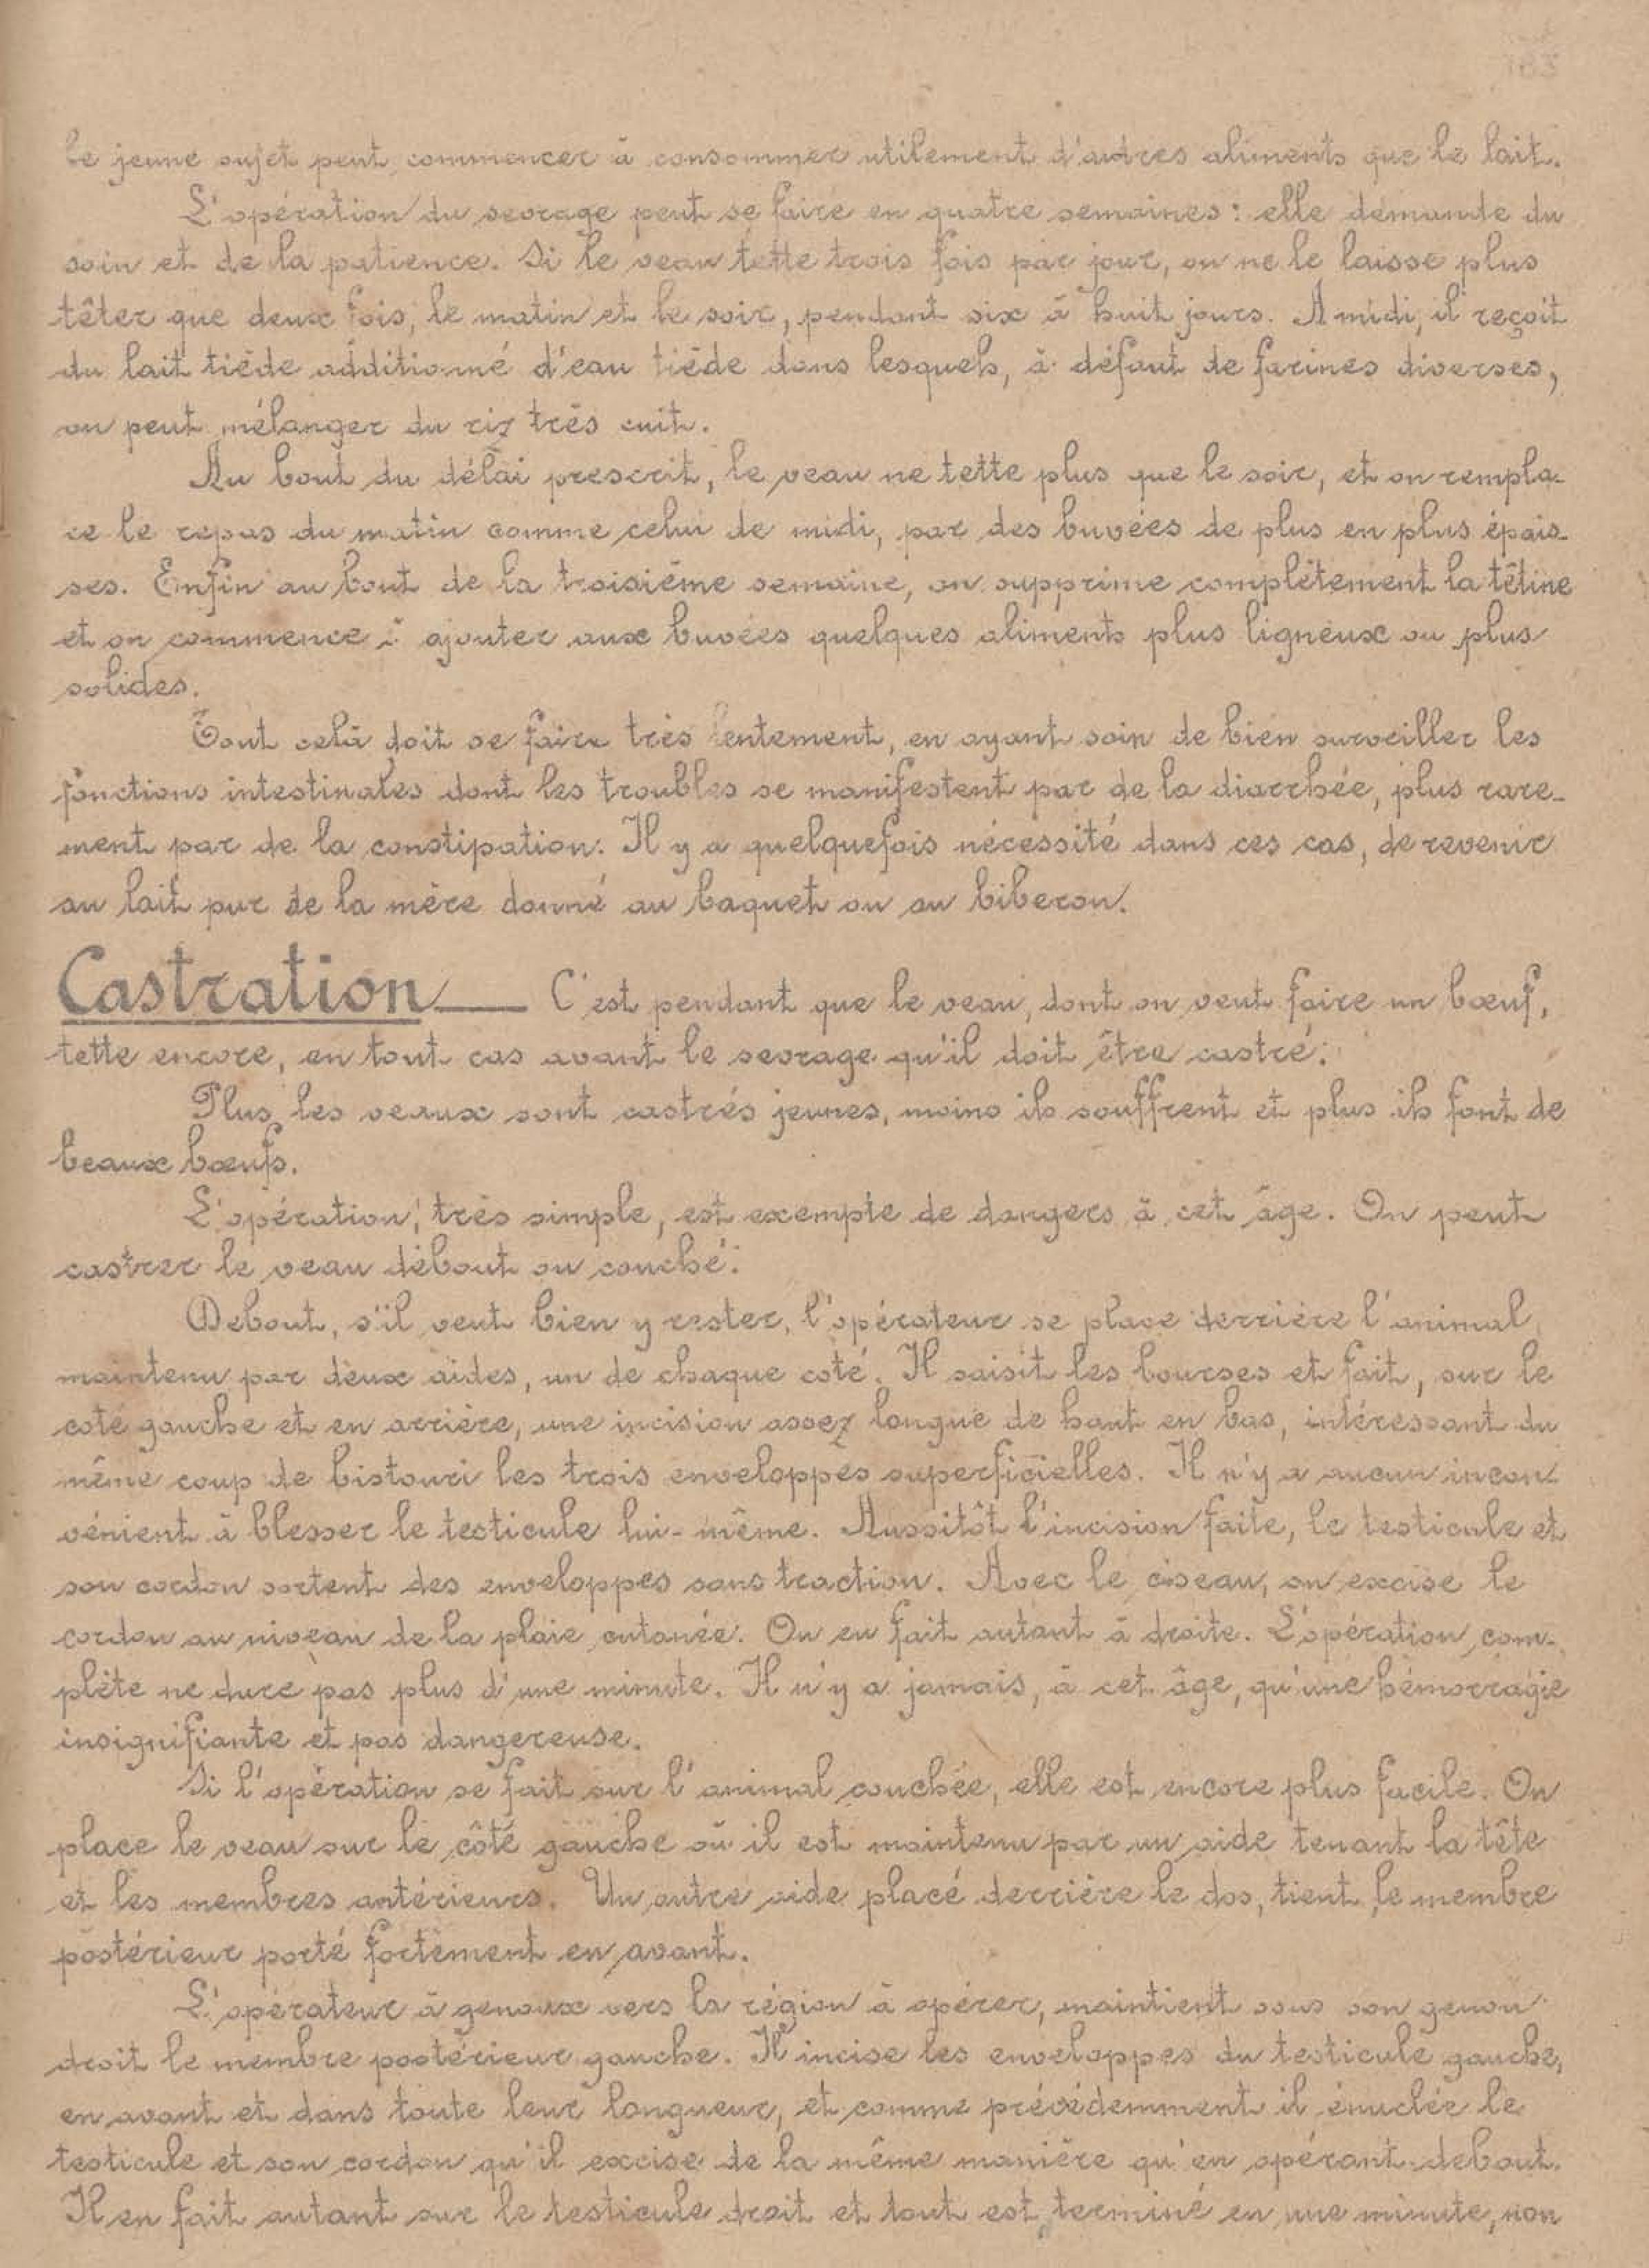 183
le jeune sujet peut commencer à consommer utilement d'autres aliments que le lait.
L'opération du sevrage peut se faire en quatre semaines : elle demande du
soin et de la patience. Si le veau tette trois fois par jour, on ne le laisse plus
têter que deux fois, le matin et le soir, pendant six à huit jours. A midi, il reçoit
du lait tiède additionné d'eau tiède dans lesquels, à défaut de farines diverses,
on peut mélanger du riz très cuit.
Au bout du délai prescrit, le veau ne tette plus que le soir, et on rempla-
ce le repas du matin comme celui de midi, par des buvées de plus en plus épais-
ses. Enfin au bout de la troisième semaine, on supprime complètement la têtine
et on commence à ajouter aux buvées quelques aliments plus ligneux ou plus
solides.
Tout celà doit se faire très lentement, en ayant soin de bien surveiller les
fonctions intestinales dont les troubles se manifestent par de la diarrhée, plus rare-
ment par de la constipation. Il y a quelquefois nécessité dans ces cas, de revenir
au lait pur de la mère donné au baquet ou au biberon.
Castration — C'est pendant que le veau, dont on veut faire un bœuf,
tette encore, en tout cas avant le sevrage qu'il doit être castré.
Plus les veaux sont castrés jeunes, moins ils souffrent et plus ils font de
beaux bœufs.
L'opération, très simple, est exempte de dangers à cet âge. On peut
castrer le veau debout ou couché.
Debout, s'il veut bien y rester, l'opérateur se place derrière l'animal
maintenu par deux aides, un de chaque coté. Il saisit les bourses et fait, sur le
coté gauche et en arrière, une incision assez longue de haut en bas, intéressant du
même coup de bistouri les trois enveloppes superficielles. Il n'y a aucun incon-
vénient à blesser le testicule lui-même. Aussitôt l'incision faite, le testicule et
son cordon sortent des enveloppes sans traction. Avec le ciseau, on excise le
cordon au niveau de la plaie cutanée. On en fait autant à droite. L'opération com-
plète ne dure pas plus d'une minute. Il n'y a jamais, à cet âge, qu'une hémorragie
insignifiante et pas dangereuse.
Si l'opération se fait sur l'animal couchée, elle est encore plus facile. On
place le veau sur le côté gauche où il est maintenu par un aide tenant la tête
et les membres antérieurs. Un autre aide placé derrière le dos, tient le membre
postérieur porté fortement en avant.
L'opérateur à genoux vers la région à opérer, maintient sous son genou
droit le membre postérieur gauche. Il incise les enveloppes du testicule gauche,
en avant et dans toute leur longueur, et comme prévédemment il énuclée le
testicule et son cordon qu'il excise de la même manière qu'en opérant debout.
Il en fait autant sur le testicule droit et tout est terminé en une minute, non